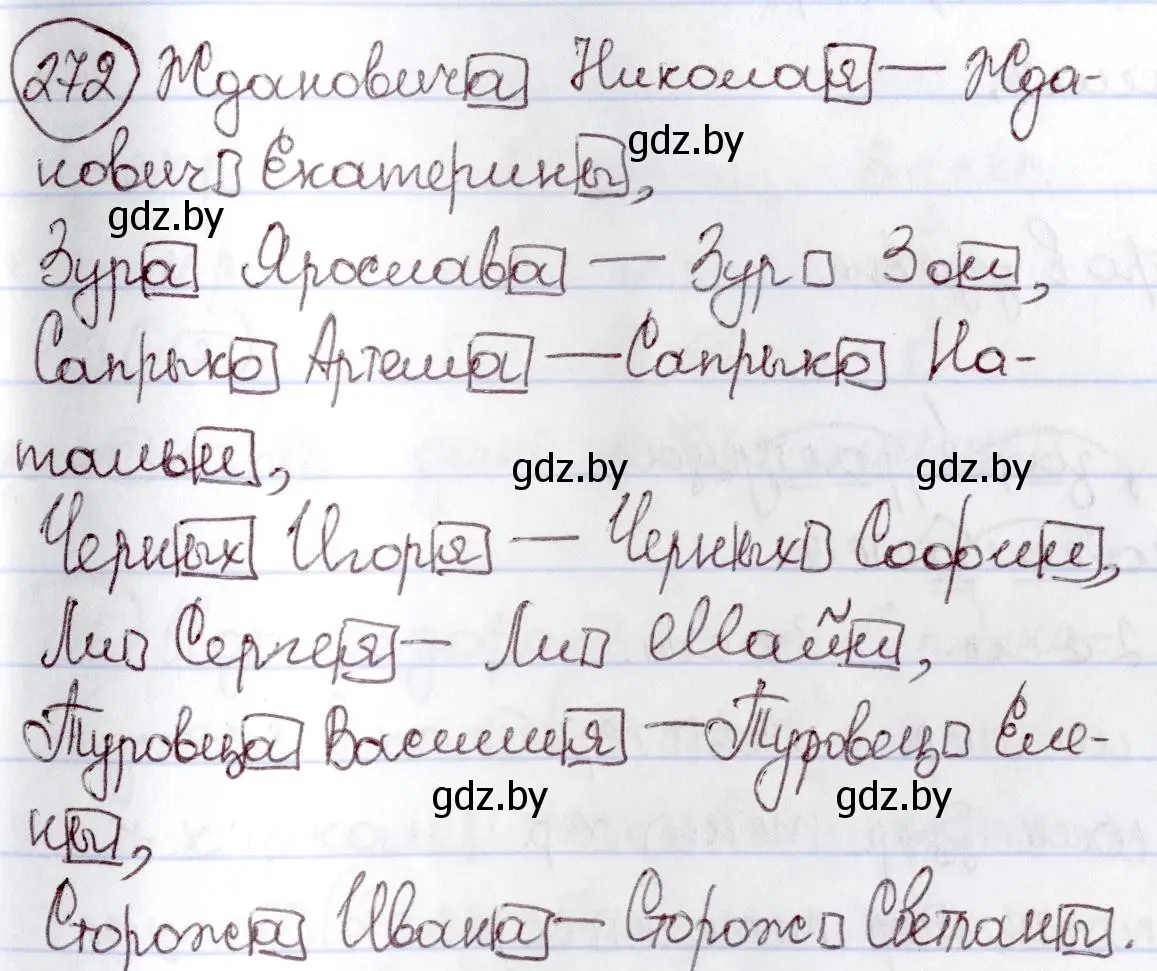 272 Ждановича Николая — Жда-
нович Екатерины,
gdz.by
gdz.by
Зура Ярослава — Зур Зои,
Сапрыко Артема — Сапрыко На-
тальи,
gdz.by gdz.by
Черных Игоря — Черных Софии,
Ли Сергея — Ли Майи,
Туровеца Василия — Туровец Еле-
ны,
gdz.by gdz.by
Сторожа Ивана — Сторож Светланы.